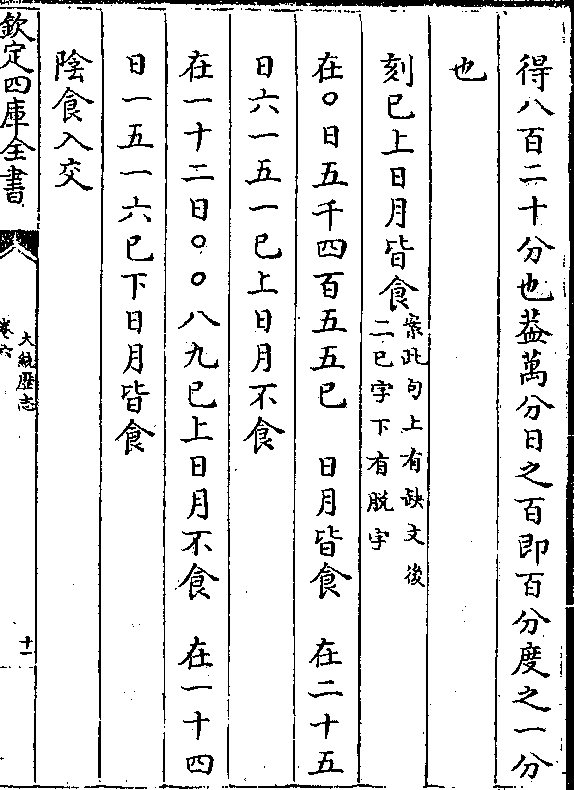 得八百二十分也葢萬分日之百即百分度之一分
也
刻已上日月皆食案此句上有缺文後二已字下有脫字
在〇日五千四百五五已　日月皆食　在二十五
日六一五一已上日月不食
在一十二日〇〇八九已上日月不食　在一十四
日一五一六已下日月皆食
陰食入交
欽定四庫全書
大統歷志
卷六
十一